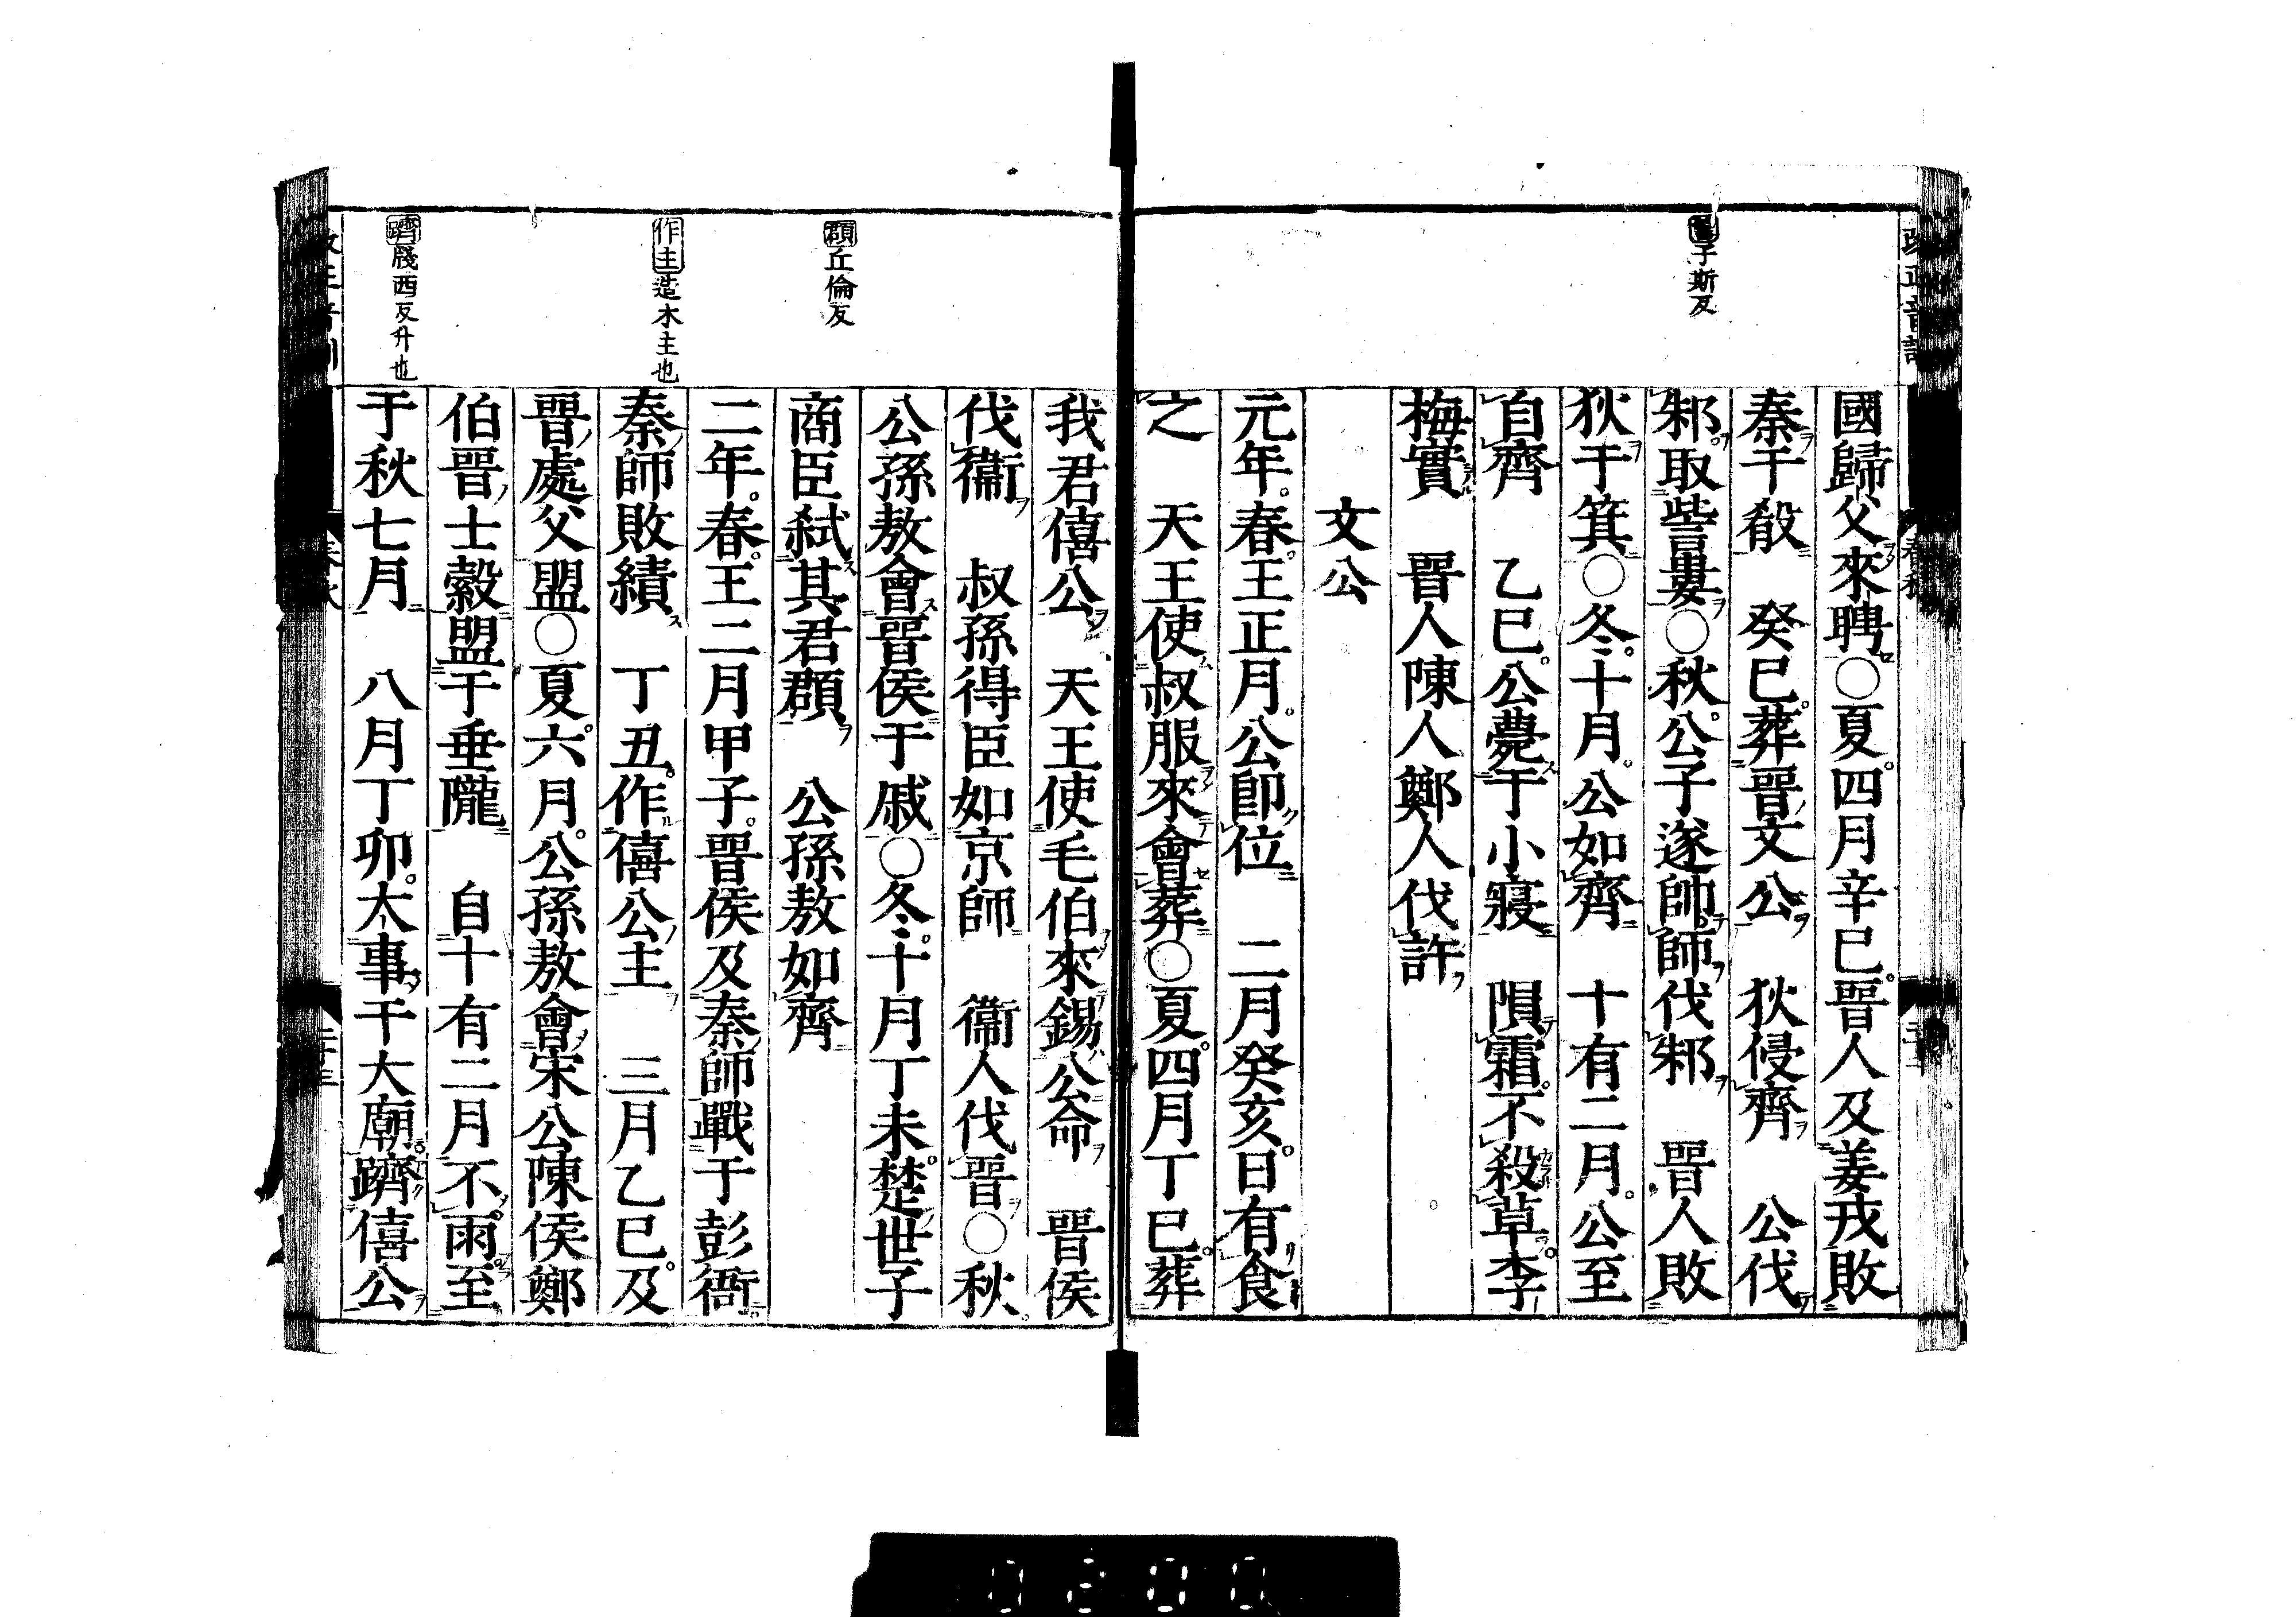 國歸父來聘〇夏四月辛巳晉人及姜戎敗
秦于殽　癸巳葬晉文公　狄侵齊　公伐
邾取訾婁〇秋公子遂帥師伐邾　晉人敗
狄于箕〇冬十月公如齊　十有二月公至
自齊　乙巳公薨于小寢　隕霜不殺草李
梅實　晉人陳人鄭人伐許
文公
元年春王正月公卽位　二月癸亥日有食
之　天王使叔服來會葬〇夏四月丁巳葬
我君僖公　天王使毛伯來錫公命　晉侯
伐衞　叔孫得臣如京師　衞人伐晉〇秋
公孫敖會晉侯于戚〇冬十月丁未楚世子
商臣弑其君頵　公孫敖如齊
二年春王二月甲子晉侯及秦師戰于彭衙
秦師敗績　丁丑作僖公主　三月乙巳及
晉處父盟〇夏六月公孫敖會宋公陳侯鄭
伯晉士縠盟于垂隴　自十有二月不雨至
于秋七月　八月丁卯大事于大廟躋僖公
子斯反
頵丘倫反
作主造木主也
躋牋西反升也
春秋